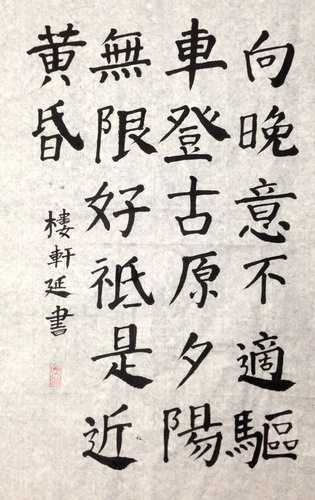 向晚意不適驅
車登古原夕陽
無限好祗是近
黄昏
樓軒延書